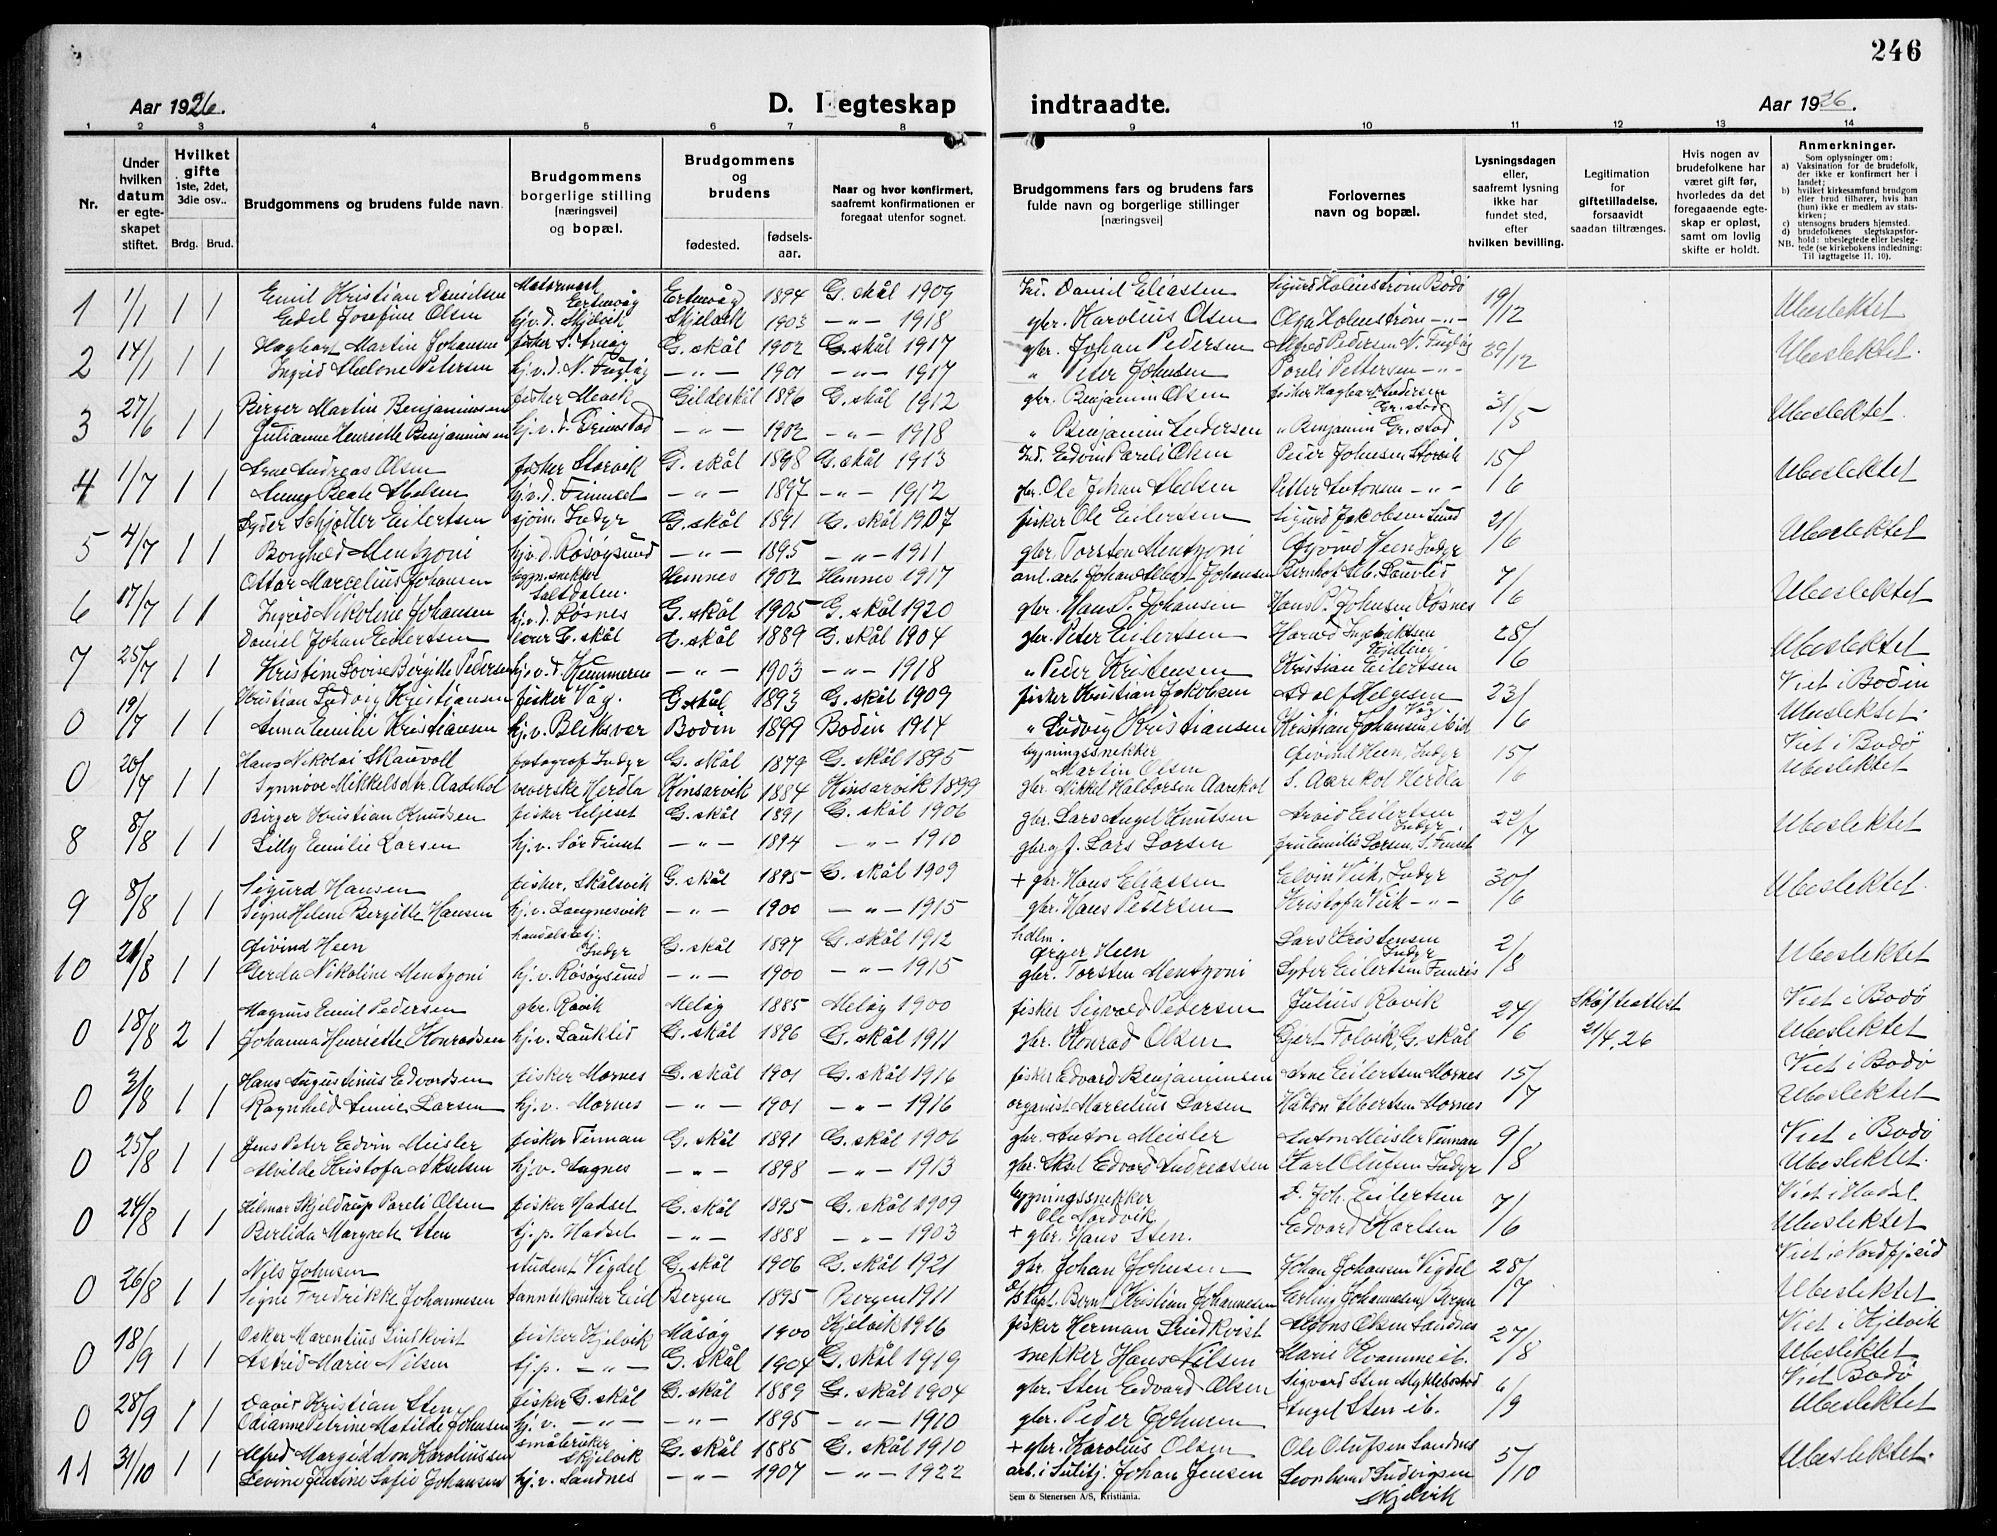 246
Aar 1926. D. I egteskap indtraadte. Aar 1926.
1 2 3 4 5 6 7 8 9 10 11 12 13 14
Nr.
Under hvilken datum er egteskapet stiftet.
Hvilket gifte 1ste, 2det, 3die osv..
Brdg. Brud.
Brudgommens og brudens fulde navn
Brudgommens borgerlige stilling [næringsvei] og bopæl.
Brudgommens og brudens
fødested. fødsels-aar.
Naar og hvor konfirmert, saafremt konfirmationen er foregaat utenfor sognet.
Brudgommens fars og brudens fars fulde navn og borgerlige stillinger [næringsvei]
Forlovernes navn og bopæl.
Lysningsdagen eller, saafremt lysning ikke har fundet sted, efter hvilken bevilling.
Legitimation for giftetilladelse, forsaavidt saadan tiltrænges.
Hvis nogen av brudefolkene har været gift før, hvorledes da det foregaaende egteskap er opløst, samt om lovlig skifte er holdt.
Anmerkninger.
Som oplysninger om:
a) Vaksination for de brudefolk, der ikke er konfirmert her i landet;
b) hvilket kirkesamfund brudgom eller brud tilhører, hvis han (hun) ikke er medlem av statskirken;
c) utensogns bruders hjemsted.
d) brudefolkenes slegtskapsforhold: ubeslegtede eller beslegtede (se kirkebokens indledning:
NB. Til iagttagelse II. 10).
1 1/1 1 1 Emil Kristian Danielsen Ertenvåg Ertenvåg 1894 G. skål 1909 Ind. Daniel Eliassen Sigurd Holmstrøm Bodø 19/12 Ubeslektet
Edel Josefine Olsen hj.v.d. Skjelvik Skjelvik 1903 -"- 1918 gbr. Karolius Olsen Olga Holmstrøm -"-
2 14/1 1 1 Hagbart Martin Johansen fisker 1902 G. skål 1917 gbr. Johan Pedersen Alfred Pedersen N. Fugløy 29/12 Ubeslektet.
Ingrid Helone Petersen hj.v.d. N. Fugløy -"- 1901 -"- 1917 " Peter Johnsen Pareli Pettersen -"-
3 27/6 1 1 Birger Martin Benjaminsen fisker Mevik Gildeskål 1896 G. skål 1912 gbr. Benjamin Olsen fisker Hagbart Andersen Gr.stad 31/5 Ubeslektet.
Julianne Henriette Benjaminsen hj.v.d. Grimstad -"- 1902 -"- 1918 " Benjamin Andersen " Benjamin Gr.stad
4 1/7 1 1 Arne Andreas Olsen fisker Storvik G. skål 1898 G. skål 1913 Ind. Edvin Pareli Olsen Peder Johnsen Storvik 15/6 Ubeslektet
Beate Abelsen hj.v.d. Finnset -"- 1897 -"- 1912 gbr. Ole Johan Abelsen Petter Antonsen -"-
5 4/7 1 1 Lyder Schjøtler Eilertsen sjøm. Indyr G. skål 1891 G. skål 1907 fisker Ole Eilertsen Sigurd Jakobsen Sund 21/6 Ubeslektet
Borghild Mentzoni hj.v.d. Røsøysund -"- 1895 -"- 1911 gbr. Torsten Mentzoni Øyvind Heen Indyr
6 17/7 1 1 Ottar Marcelius Johansen bygn.snekker Saltdalen. Hemnes 1902 Hemnes 1917 anl.arb. Johan Albert Johansen 7/6 Ubeslektet
Ingrid Nikoline Johansen hj.v.d. Røsnes G. skål 1905 G. skål 1920 gbr. Hans P. Johansen Hans P. Johnsen Røsnes
7 25/7 1 1 Daniel Johan Eilertsen G. skål G. skål 1889 G. skål 1904 gbr. Peter Eilertsen Harald Ingebriktsen 28/6 Ubeslektet
Kristine Lovise Birgitte Pedersen hj.v.d. Hammeren -"- 1903 -"- 1918 " Peder Kristensen Kristian Eilertsen Viet i Bodin
0 19/7 1 1 Kristian Ludvig Kristiansen fisker Våg. G. skål 1893 G. skål 1909 fisker Kristian Jakobsen Adolf Helgesen Våg 23/6 Ubeslektet.
Anna Emilie Kristiansen hj.v. Bliksvær Bodin 1899 Bodin 1914 " Ludvig Kristiansen Kristian Johansen ibid Viet i Bodø
0 20/7 1 1 Hans Nikolai Skauvoll fotograf Indyr G. skål 1879 G. skål 1895 bygningssnekker Martin Olsen Øivind Heen, Indyr 15/6 Ubeslektet
Synnøve Mikkelsdtr. Aarekol veverske Herdla Kinsarvik 1884 Kinsarvik 1899 gbr. Mikkel Halvorsen Aarekol S. Aarekol Herdla
8 8/8 1 1 Birger Kristian Knudsen fisker G. skål 1891 G. skål 1906 gbr. Lars Angel Knutsen Arvid Eilertsen Indyr. 22/7 Ubeslektet
Lilly Emilie Larsen hj.v. Sør Finset -"- 1894 -"- 1910 gbr. og f. Lars Larsen fru Emilie Larsen, S. Finset
9 8/8 1 1 Sigurd Hansen fisker, Skålsvik G. skål 1895 G. skål 1909 + gbr. Hans Eliassen Elvin Vik, Indyr 30/6 Ubeslektet.
Signe Helene Bergitte Hansen hj.v. Langnesvik -"- 1900 -"- 1915 gbr. Hans Petersen Kristofer Vik -"-
10 21/8 1 1 Øivind Heen handelsbetj. Indyr G. skål 1897 G. skål 1912 hdlm. Ørger Heen Lars Kristensen Indyr 2/8 Ubeslektet
Gerda Nikoline Mentzoni hj.v. Røsøysund -"- 1900 -"- 1915 gbr. Torsten Mentzoni Lyder Eilertsen
0 18/8 2 1 Magnus Emil Pedersen gbr. Røvik Meløy 1885 Meløy 1900 fisker Sigvald Pedersen Julius Røvik 24/6 Skifteattest Viet i Bodø
Johanna Henriette Konradsen hj.v. Lauklid G. skål 1896 G. skål 1911 gbr. Konrad Olsen Gjert Folvik, G. skål 21/4.26 Ubeslektet
0 3/8 1 1 Hans Augustinus Edvardsen fisker Mørnes G. skål 1901 G. skål 1916 fisker Edvard Benjaminsen Arne Eilertsen Mørnes 15/7 Viet i Bodø
Ragnhild Annie Larsen hj.v. Mørnes -"- 1901 -"- 1916 organist Marcelius Larsen Håkon Albertsen Mørnes Ubeslektet
0 25/8 1 1 Jens Peter Edvin Meisler fisker Finnan G. skål 1891 G. skål 1906 gbr. Anton Meisler Anton Meisler Finnan 9/8 Viet i Bodø
Alvilde Kristofa Akselsen hj.v. Angnes -"- 1898 -"- 1913 gbr. Aksel Edvard Andreassen Karl Olufsen Indyr Ubeslektet.
0 24/8 1 1 Hilmar Skjeldrup Pareli Olsen fisker Hadset G. skål 1895 G. skål 1909 bygningssnekker Ole Nordvik D. Joh. Eilertsen 7/6 Viet i Hadsel
Berlida Margrete Sten tj.p. Hadset -"- 1888 -"- 1903 + gbr. Hans Sten. Edvard Karlsen Ubeslektet
0 26/8 1 1 Nils Johnsen student Vigdel G. skål 1906 G. skål 1921 gbr. Johan Johnsen Johan Johansen Vigdel 28/7 Viet i Nordfjeid
Signe Fredrikke Johannesen tanntekniker Eid Bergen 1895 Bergen 1911 D/S Kapt. Bernt Kristian Johannesen Erling Johannesen, Bergen Ubeslektet
0 18/9 1 1 Oskar Marentius Lindkvist fisker Kjelvik Måsøy 1900 Kjelvik 1916 fisker Herman Lindkvist Mons Olsen Sandnes 27/8 Viet i Kjelvik
Astrid Marie Nilsen tj.p. -"- G. skål 1904 G. skål 1919 snekker Hans Nilsen Marie Kvamme ib. Ubeslektet
0 28/9 1 1 David Kristian Sten fisker G. skål G. skål 1889 G. skål 1904 gbr. Sten Edvard Olsen Sigvard Sten Myklebostad 6/9 Viet Bodø
Odianne Petrine Matilde Johnsen hj.v. -"- -"- 1895 -"- 1910 gbr. Peder Johnsen Angel Sten ib. Ubeslektet
11 31/10 1 1 Alfred Margiddon Karoliussen småbruker Skjelvik G. skål 1885 G. skål 1910 + gbr. Karolius Olsen Ole Olufsen Sandnes 5/10 Ubeslektet.
Levine Jasine Sofie Johansen hj.v. Sandnes -"- 1907 -"- 1922 arb. i Sulitj. Johan Jensen Leonhard Ludvigsen Skjelvik
Sem & Stenersen A/S, Kristiania.